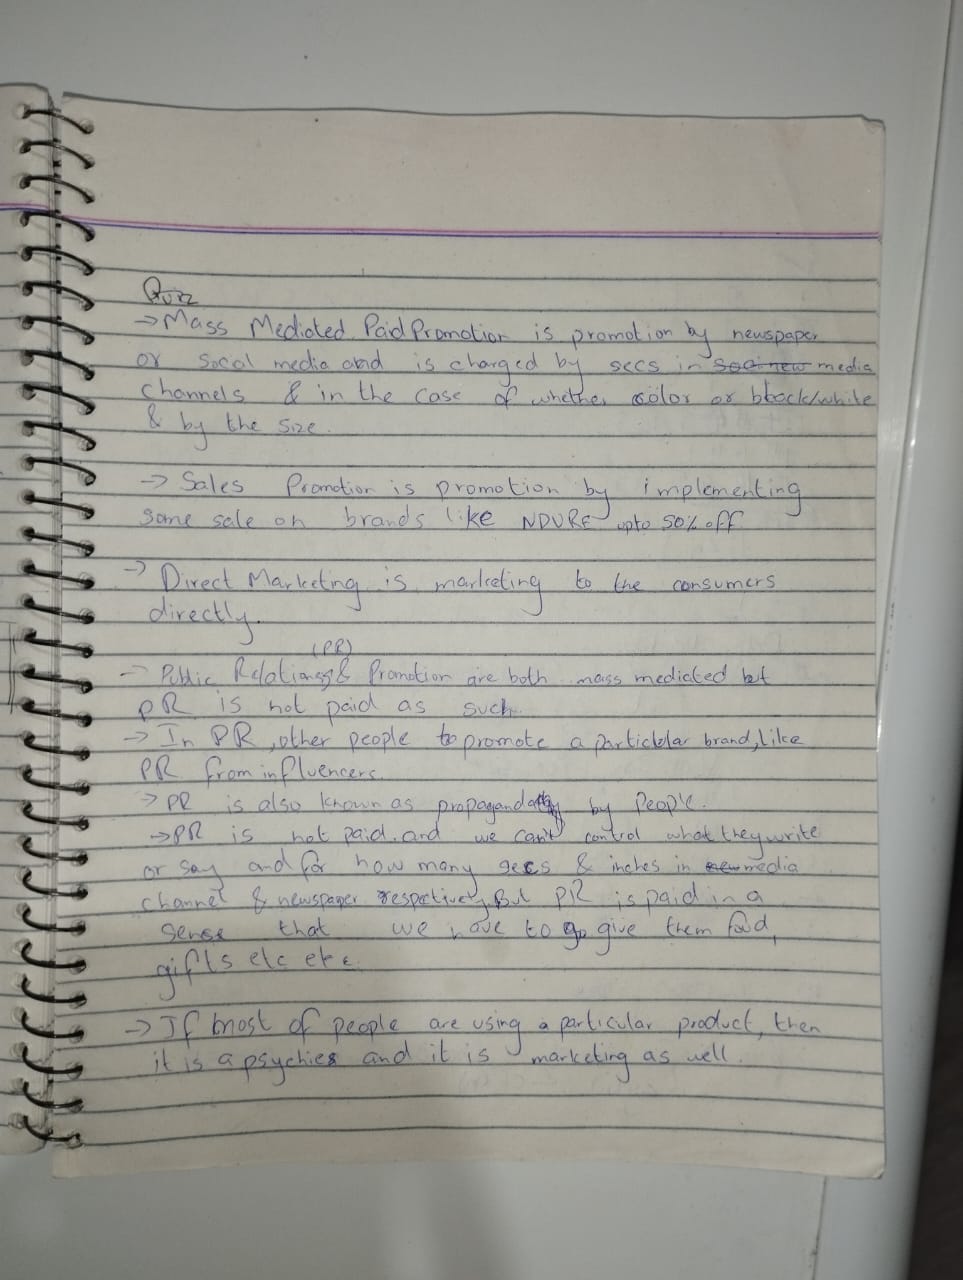 Quiz
→ Mass Mediated Paid Promotion is promotion by newspaper
or Socal media and is charged by secs in media
channels & in the case of whether color or black/white
& by the size.
→ Sales Promotion is promotion by implementing
some sale on brands like NDURE upto 50% off
→ Direct Marketing is marketing to the consumers
directly.
(PR)
→ Public Relations & Promotion are both mass mediated but
PR is not paid as such.
→ In PR, other people to promote a particular brand, like
PR from influencers.
→ PR is also known as propaganda by people.
→ PR is not paid and we can't control what they write
or say and for how many secs & inches in media
channel & newspaper respectively. But PR is paid in a
sense that we have to give them food,
gifts etc etc.
→ If most of people are using a particular product, then
it is a psychies and it is marketing as well.